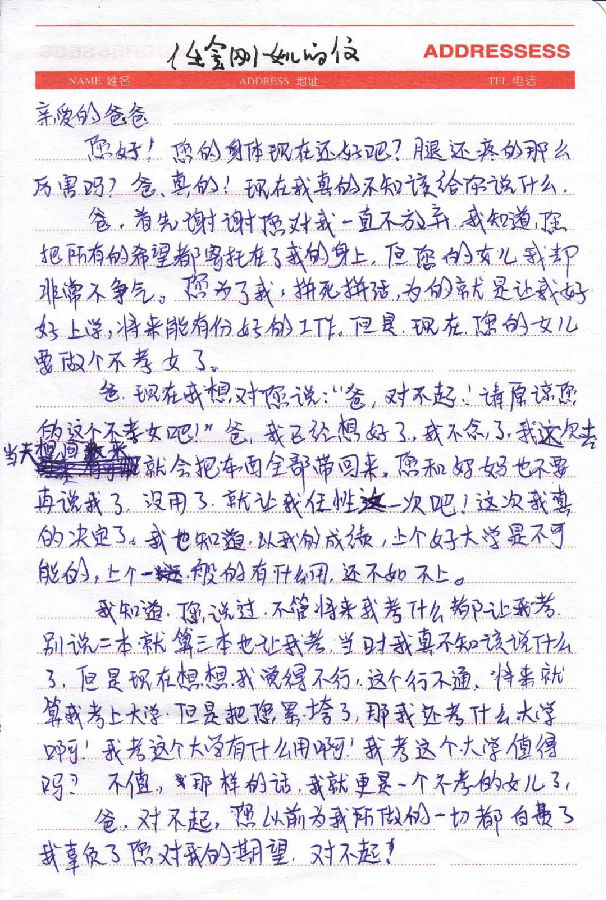 任金刚女儿的信
ADDRESSESS
NAME 姓名 ADDRESS 地址 TEL 电话
亲爱的爸爸
您好！您的身体现在还好吧？腿还疼的那么
厉害吗？爸，真的！现在我真的不知该给你说什么．
爸，首先谢谢您对我一直不放弃，我知道，您
把所有的希望都寄托在了我的身上，但您的女儿我却
非常不争气。您为了我，拼死拼活，为的就是让我好
好上学，将来能有份好的工作，但是．现在．您的女儿
要做个不孝女了。
爸．现在我想对您说：“爸，对不起！请原谅您
的这个不孝女吧！”爸，我已经想好了，我不念了，我这次去
当天就会把东西全部带回来，您和妈妈也不要
再说我了，没用了，就让我任性这一次吧！这次我真
的决定了。我也知道，以我的成绩，上个好大学是不可
能的，上个一般的有什么用，还不如不上。
我知道．您说过．不管将来我考什么都让我考．
别说二本就算三本也让我考，当时我真不知该说什么
了，但是现在想想．我觉得不行，这个行不通，将来就
算我考上大学．但是把您累垮了，那我还考什么大学
啊！我考这个大学有什么用啊！我考这个大学值得
吗？不值，那样的话，我就更是一个不孝的女儿了，
爸，对不起，您以前为我所做的一切都白费了
我辜负了您对我的期望．对不起！